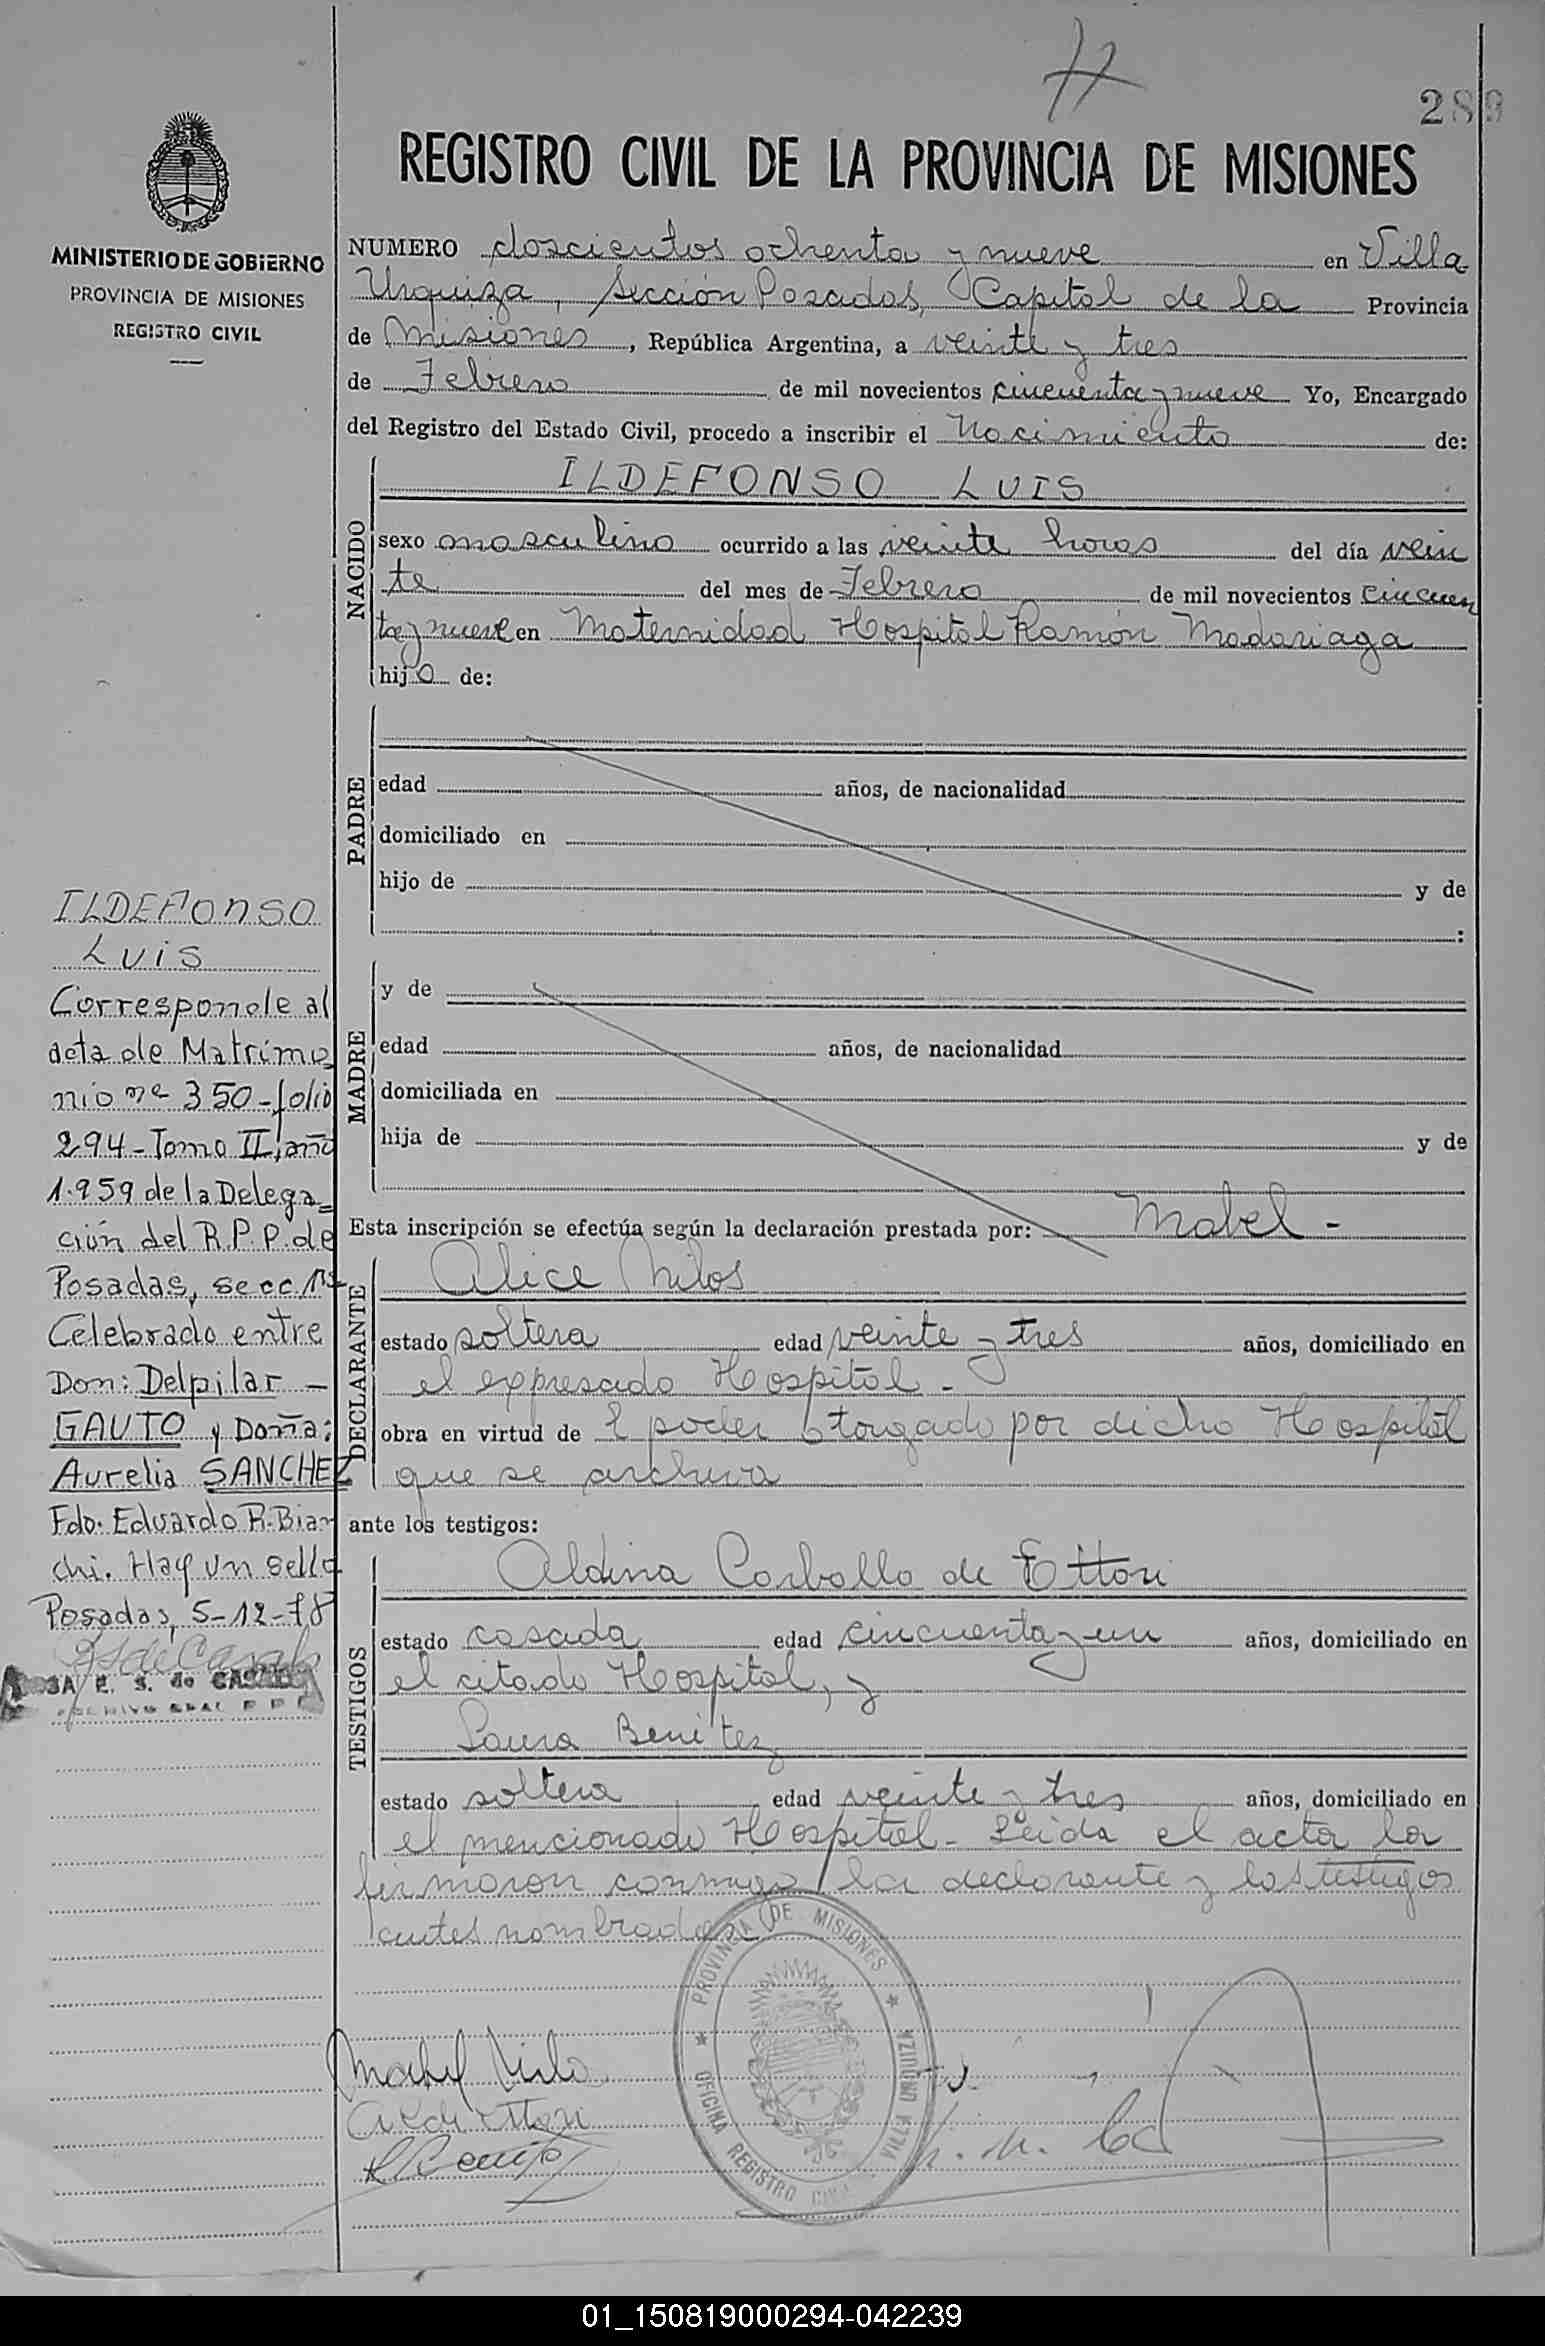 289
REGISTRO CIVIL DE LA PROVINCIA DE MISIONES
MINISTERIO DE GOBIERNO
PROVINCIA DE MISIONES
REGISTRO CIVIL
NUMERO doscientos ochenta y nueve en Villa
Urquiza, Sección Posadas, Capital de la Provincia
de Misiones, República Argentina, a veinte y tres
de Febrero de mil novecientos cincuenta y nueve Yo, Encargado
del Registro del Estado Civil, procedo a inscribir el Nacimiento de:
NACIDO
ILDEFONSO LUIS
sexo masculino ocurrido a las veinte horas del día vein
te del mes de Febrero de mil novecientos cincuen
ta y nueve en Maternidad Hospital Ramón Madariaga
hijo de:
PADRE
edad años, de nacionalidad
domiciliado en
hijo de y de
:
MADRE
y de
edad años, de nacionalidad
domiciliada en
hija de y de
Esta inscripción se efectúa según la declaración prestada por: Mabel -
DECLARANTE
Alice Milos
estado soltera edad veinte y tres años, domiciliado en
el expresado Hospital -
obra en virtud de l poder otorgado por dicho Hospital
que se archiva
ante los testigos:
TESTIGOS
Aldina Carballo de Ettori
estado casada edad cincuenta y un años, domiciliado en
el citado Hospital, y
Laura Benitez
estado soltera edad veinte y tres años, domiciliado en
el mencionado Hospital - Leida el acta la
firmaron conmigo la declarante y los testigos
antes nombrados
ILDEFONSO
LUIS
Corresponde al
acta de Matrimo
nio nº 350 - folio
294 - Tomo II, año
1.959 de la Delega=
ción del R.P.P. de
Posadas, secc. 1ª
Celebrado entre
Don: Delpilar -
GAUTO y Doña:
Aurelia SANCHEZ
Fdo: Eduardo R. Bian
chi. Hay un sello
Posadas, 5-12-78
E. S. de CASALS
PROVINCIA DE MISIONES
OFICINA REGISTRO CIVIL VILLA URQUIZA
01_150819000294-042239